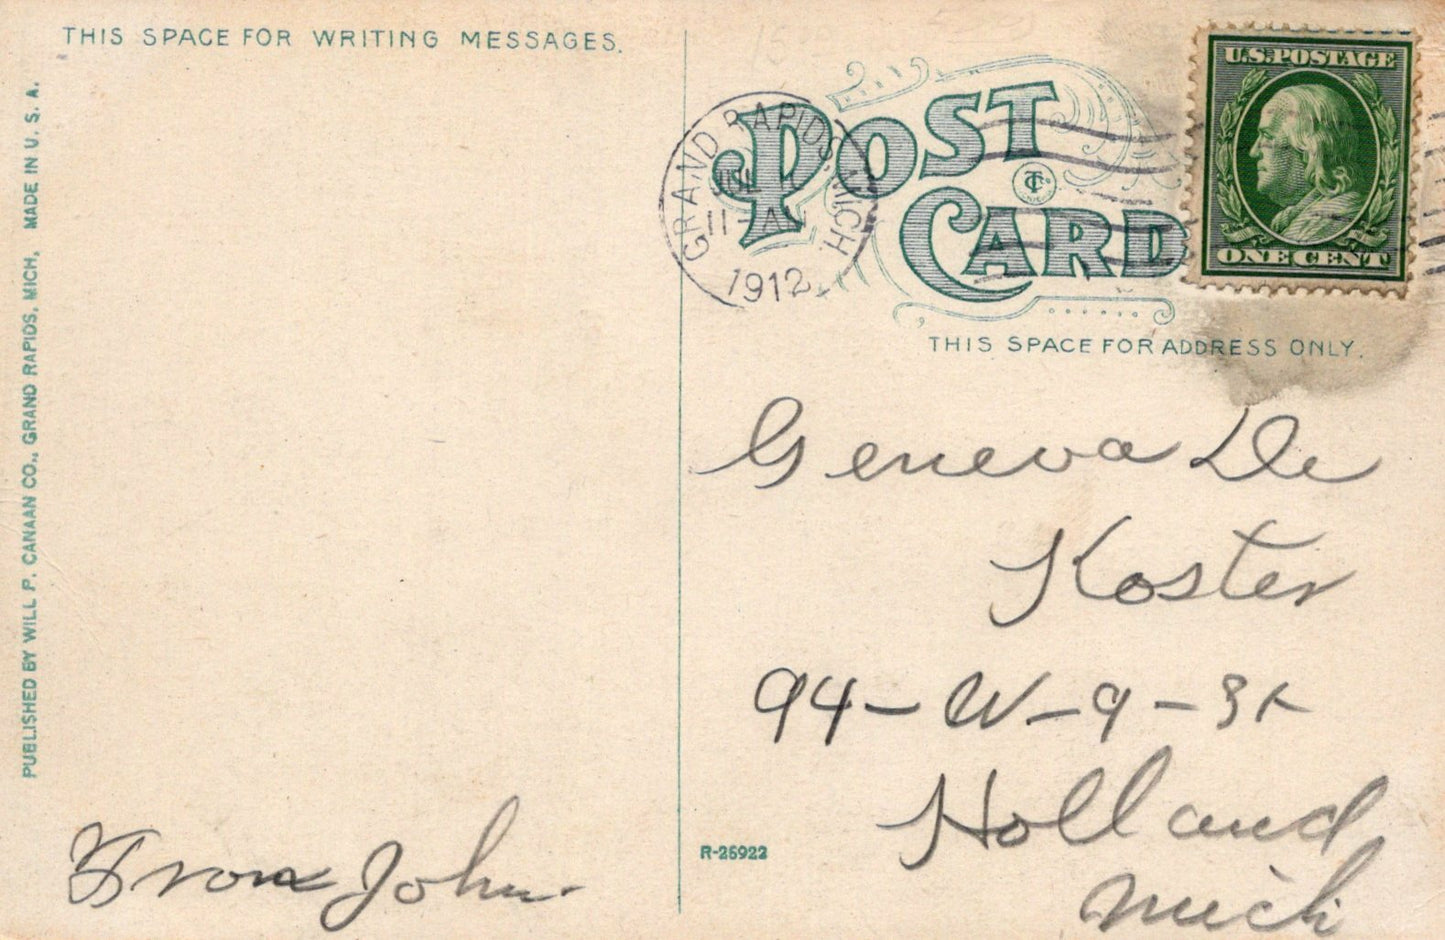 THIS SPACE FOR WRITING MESSAGES.
PUBLISHED BY WILL P. CANAAN CO., GRAND RAPIDS, MICH, MADE IN U. S. A.
From John
POST
CARD
GRAND RAPIDS, MICH.
11-A
1912
U.S. POSTAGE
ONE CENT
THIS SPACE FOR ADDRESS ONLY.
Geneva De
Koster
94-W-9-St
Holland
Mich
R-25922